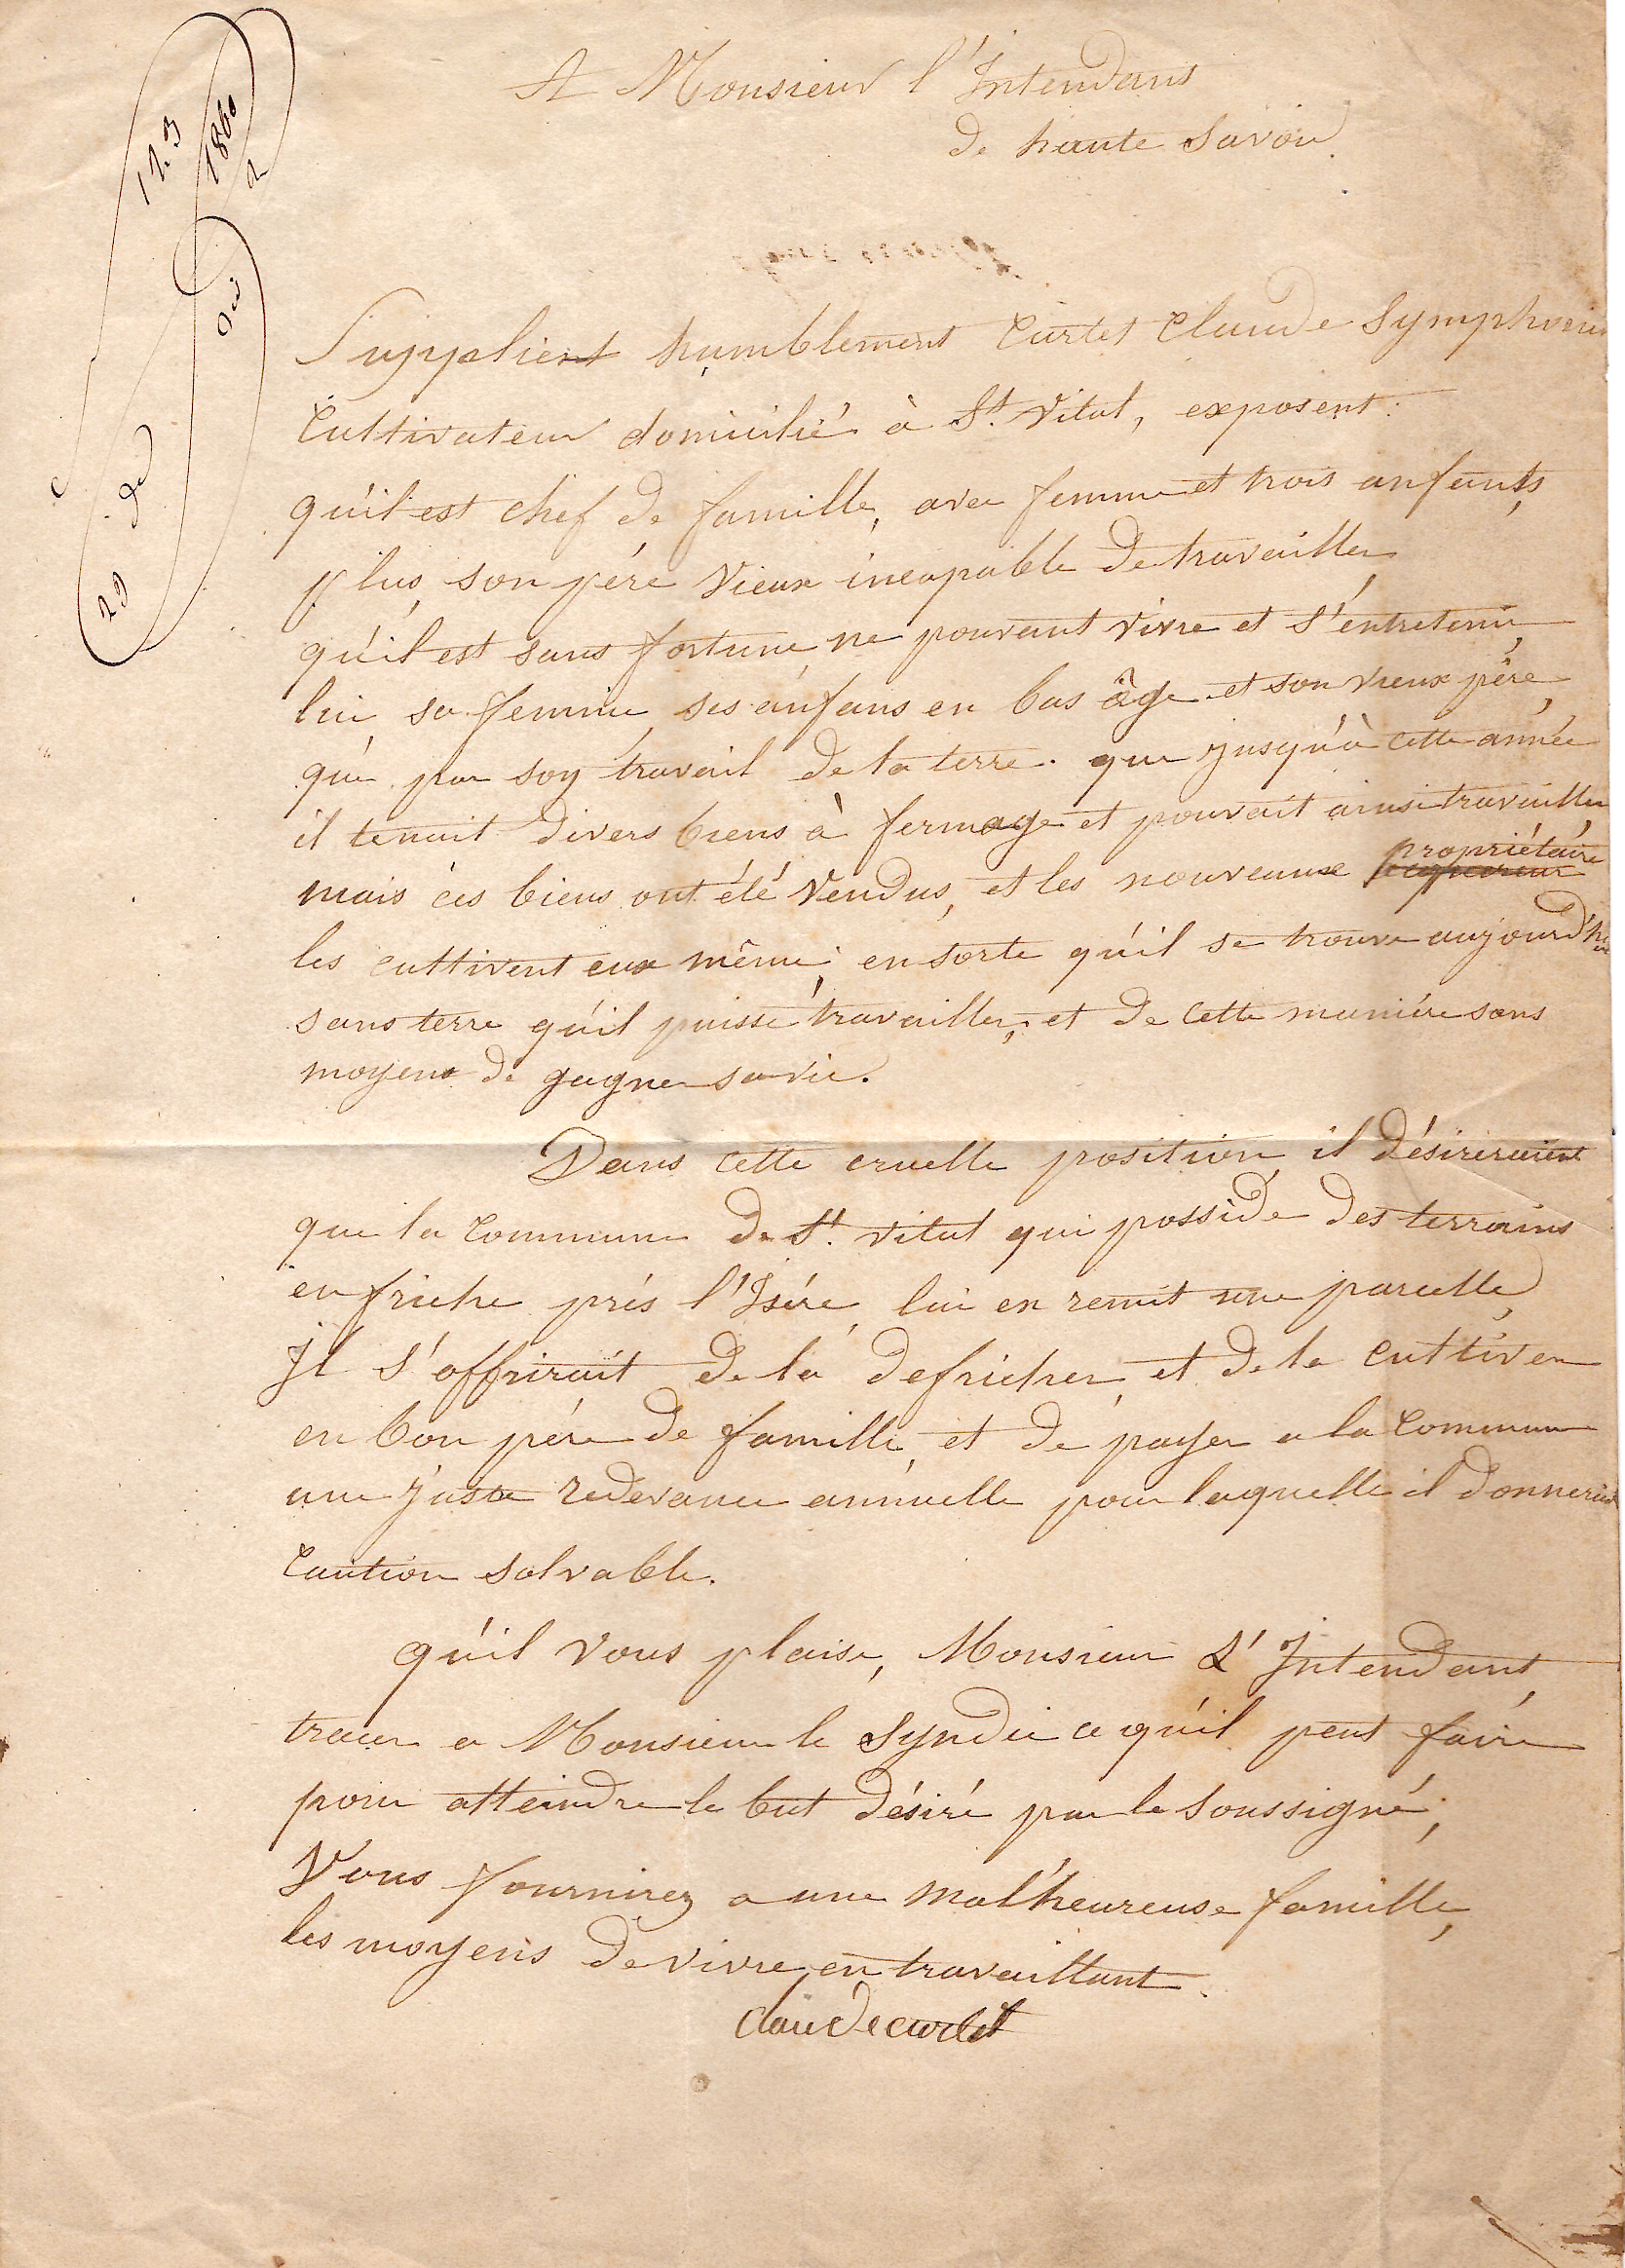 A Monsieur l'Intendant
de haute Savoie
123
1860
29
Supplient humblement Curtet Claude Symphorien
Cultivateur domicilié à St. Vital, exposent:
qu'il est chef de famille, avec femme et trois anfants,
plus son père vieux incapable de travailler
qu'il est sans fortune, ne pouvant vivre et s'entretenir,
lui, sa femme, ses anfans en bas âge et son vieux père,
que par soy travail de la terre. que jusqu'à cette année
il tenait divers biens à fermage et pouvait ainsi travailler
propriétaire
mais ces biens ont été vendus, et les nouveaux
les cultivent eux même; en sorte qu'il se trouve aujourd'hui
sans terre qu'il puisse travailler, et de cette manière sans
moyens de gagner sa vie.
Dans cette cruelle position, il désireraient
que la commune de St. Vital qui possède des terrains
en friche près l'Isère, lui en remit une parcelle,
Il s'offrirait de la defricher, et de la cultiver
en bon père de famille, et de payer a la Commune
une juste redevance annuelle pour laquelle il donnerait
Caution solvable.
qu'il vous plaise, Monsieur L'Intendant,
tracer a Monsieur le Syndic ce qu'il peut faire
pour atteindre le but désiré par le soussigné,
Vous fournirez a une mal'heureuse famille,
les moyens de vivre en travaillant.
Claude curtet